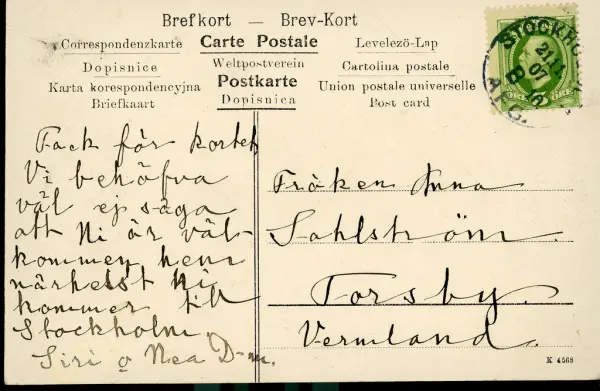 Brefkort — Brev-Kort
Correspondenzkarte Carte Postale Levelezö-Lap
Dopisnice Weltpostverein Cartolina postale
Karta korespondencyjna Postkarte Union postale universelle
Briefkaart Dopisnica Post card
STOCKHOLM
21.11.
07
A.F.G.
ÖRE ÖRE
Tack för kortet
Vi behöfva
väl ej säga
att Ni är väl-
kommen hem
närhelst Ni
kommer till
Stockholm.
Siri o Nea D-m.
Fröken Anna
Sahlström.
Torsby.
Vermland.
K 4568